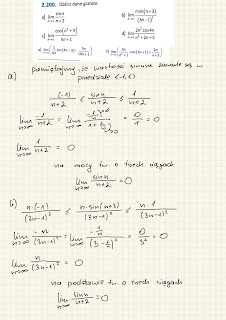 2.200. Oblicz dane granice.
a) lim n→∞ sin n / n+2
b) lim n→∞ n sin(n+3) / (3n−1)²
c) lim n→∞ cos(n²+4) / 5n+1
d) lim n→∞ 2n² cos 4n
pamiętajmy, że wartości sinusa zawarte są w
przedziale ⟨-1,1⟩
a)
(-1) / n+2 ≤ sin n / n+2 ≤ 1 / n+2
lim n→∞ = lim n→∞ = 0/1 = 0
lim n→∞ 1 / n+2 = 0
na mocy tw. o trzech ciągach
lim n→∞ sin n / n+2 = 0
b)
n·(-1) / (3n-1)² ≤ n·sin(n+3) / (3n-1)² ≤ n·1 / (3n-1)²
lim n→∞ -n / (3n-1)² = lim n→∞ -1/n / (3-1/n)² = 0/3² = 0
lim n→∞ n / (3n-1)² = 0
na podstawie tw. o trzech ciągach
lim n→∞ sin n / n+2 = 0